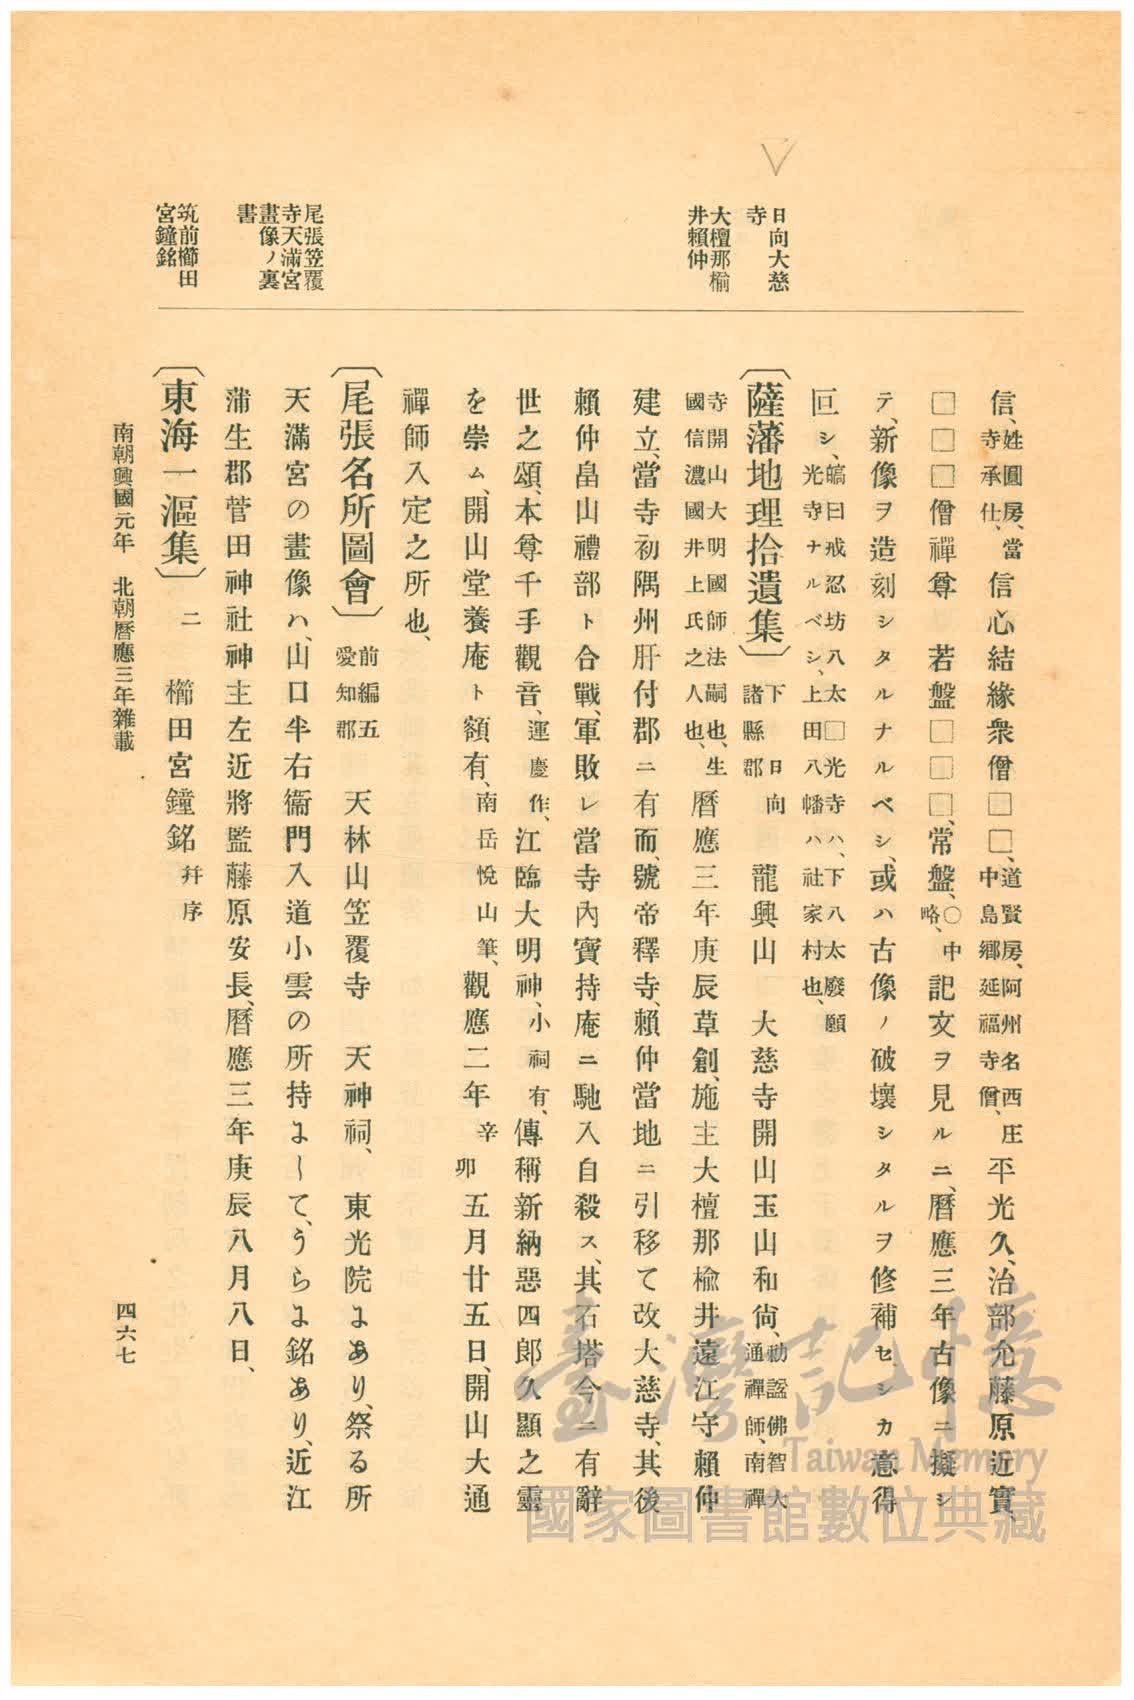 日向大慈
寺
大檀那楡
井賴仲
尾張笠覆
寺天滿宮
畫像ノ裏
書
筑前櫛田
宮鐘銘
信、姓圓房、當寺承仕、信心結緣衆僧□□、道賢房、阿州名西庄中島鄉延福寺僧、平光久、治部允藤原近實、
□□□僧禪尊　若盤□□□、常盤、〇中略、記文ヲ見ルニ、曆應三年古像ニ擬シ
テ、新像ヲ造刻シタルナルベシ、或ハ古像ノ破壞シタルヲ修補セシカ意得
叵シ、皜曰戒忍坊八太□光寺ハ、下八太廢願光寺ナルベシ、上田八幡ハ社家村也、
〔薩藩地理拾遺集〕下　日向諸縣郡　龍興山　大慈寺開山玉山和尙、勅諡佛智大通禪師、南禪
寺開山大明國師法嗣也、生國信濃國井上氏之人也、曆應三年庚辰草創、施主大檀那楡井遠江守賴仲
建立、當寺初隅州肝付郡ニ有而、號帝釋寺、賴仲當地ニ引移て改大慈寺、其後
賴仲畠山禮部ト合戰、軍敗レ當寺內寶持庵ニ馳入自殺ス、其石塔今ニ有辭
世之頌、本尊千手觀音、運慶作、江臨大明神、小祠有、傳稱新納惡四郎久顯之靈
を崇ム、開山堂養庵ト額有、南岳悅山筆、觀應二年辛卯五月廿五日、開山大通
禪師入定之所也、
〔尾張名所圖會〕前編五愛知郡　天林山笠覆寺　天神祠、　東光院にあり、祭る所
天滿宮の畫像ハ、山口半右衞門入道小雲の所持にして、うらに銘あり、近江
蒲生郡菅田神社神主左近將監藤原安長、曆應三年庚辰八月八日、
〔東海一漚集〕二　櫛田宮鐘銘幷序
南朝興國元年　北朝曆應三年雜載
四六七
臺灣記憶
Taiwan Memory
國家圖書館數位典藏